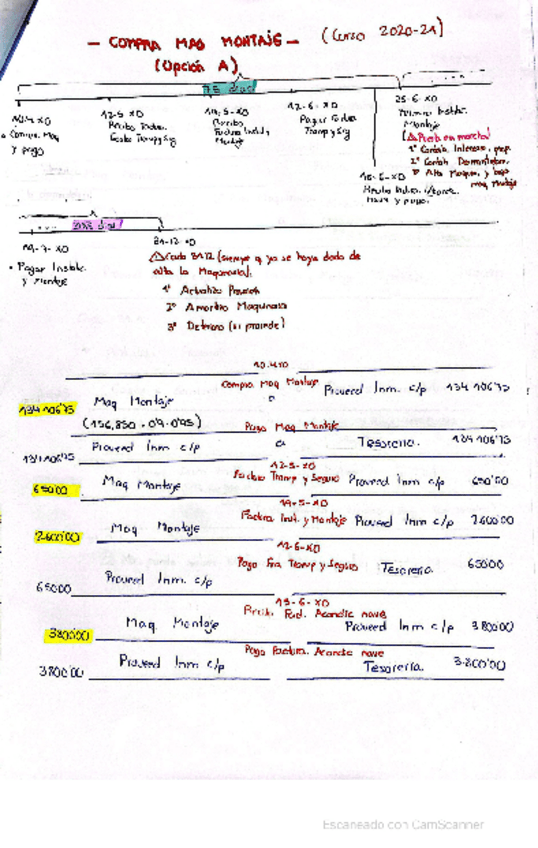 - COMPRA MAQ MONTAJE - (Curso 2020-21)
(Opción A)
75 días
10-4-X0
Compra Maq
y pago
12-5-X0
Recibo Factura
Gasto Transp y Sg
19-5-X0
Recibo
Factura Inst. y
Montaje
12-6-X0
Pagar Factura
Transp y Sg
15-6-X0
nave y pago.
25-6-X0
Termino Instala.
Montaje
(⚠ Puesta en marcha)
19-7-X0
• Pagar Instala.
y Montaje
31-12-X0
⚠ Cada 31-12 (siempre q ya se haya dado de
alta la Maquinaria):
1º Actualizo
2º Amortizo Maquinaria
3º Deterioro (si procede)
10-4-X0
Compra Maq Montaje
134.106'75 Maq Montaje a Proveed Inm. c/p 134.106'75
(156.850 · 0'9 · 0'95)
Pago Maq Montaje
134.106'75 Proveed Inm c/p a Tesorería. 134.106'75
12-5-X0
Factura Transp y Seguro
650'00 Maq Montaje Proveed Inm c/p 650'00
19-5-X0
Factura Inst. y Montaje
2.600'00 Maq Montaje Proveed Inm c/p 2.600'00
12-6-X0
Pago Fra Transp y Seguro
650'00 Proveed Inm c/p Tesorería 650'00
15-6-X0
Recib. Fact. Acondic nave
3.800'00 Maq. Montaje Proveed Inm c/p 3.800'00
Pago Factura. Acondic nave
3.800'00 Proveed Inm c/p Tesorería. 3.800'00
Escaneado con CamScanner